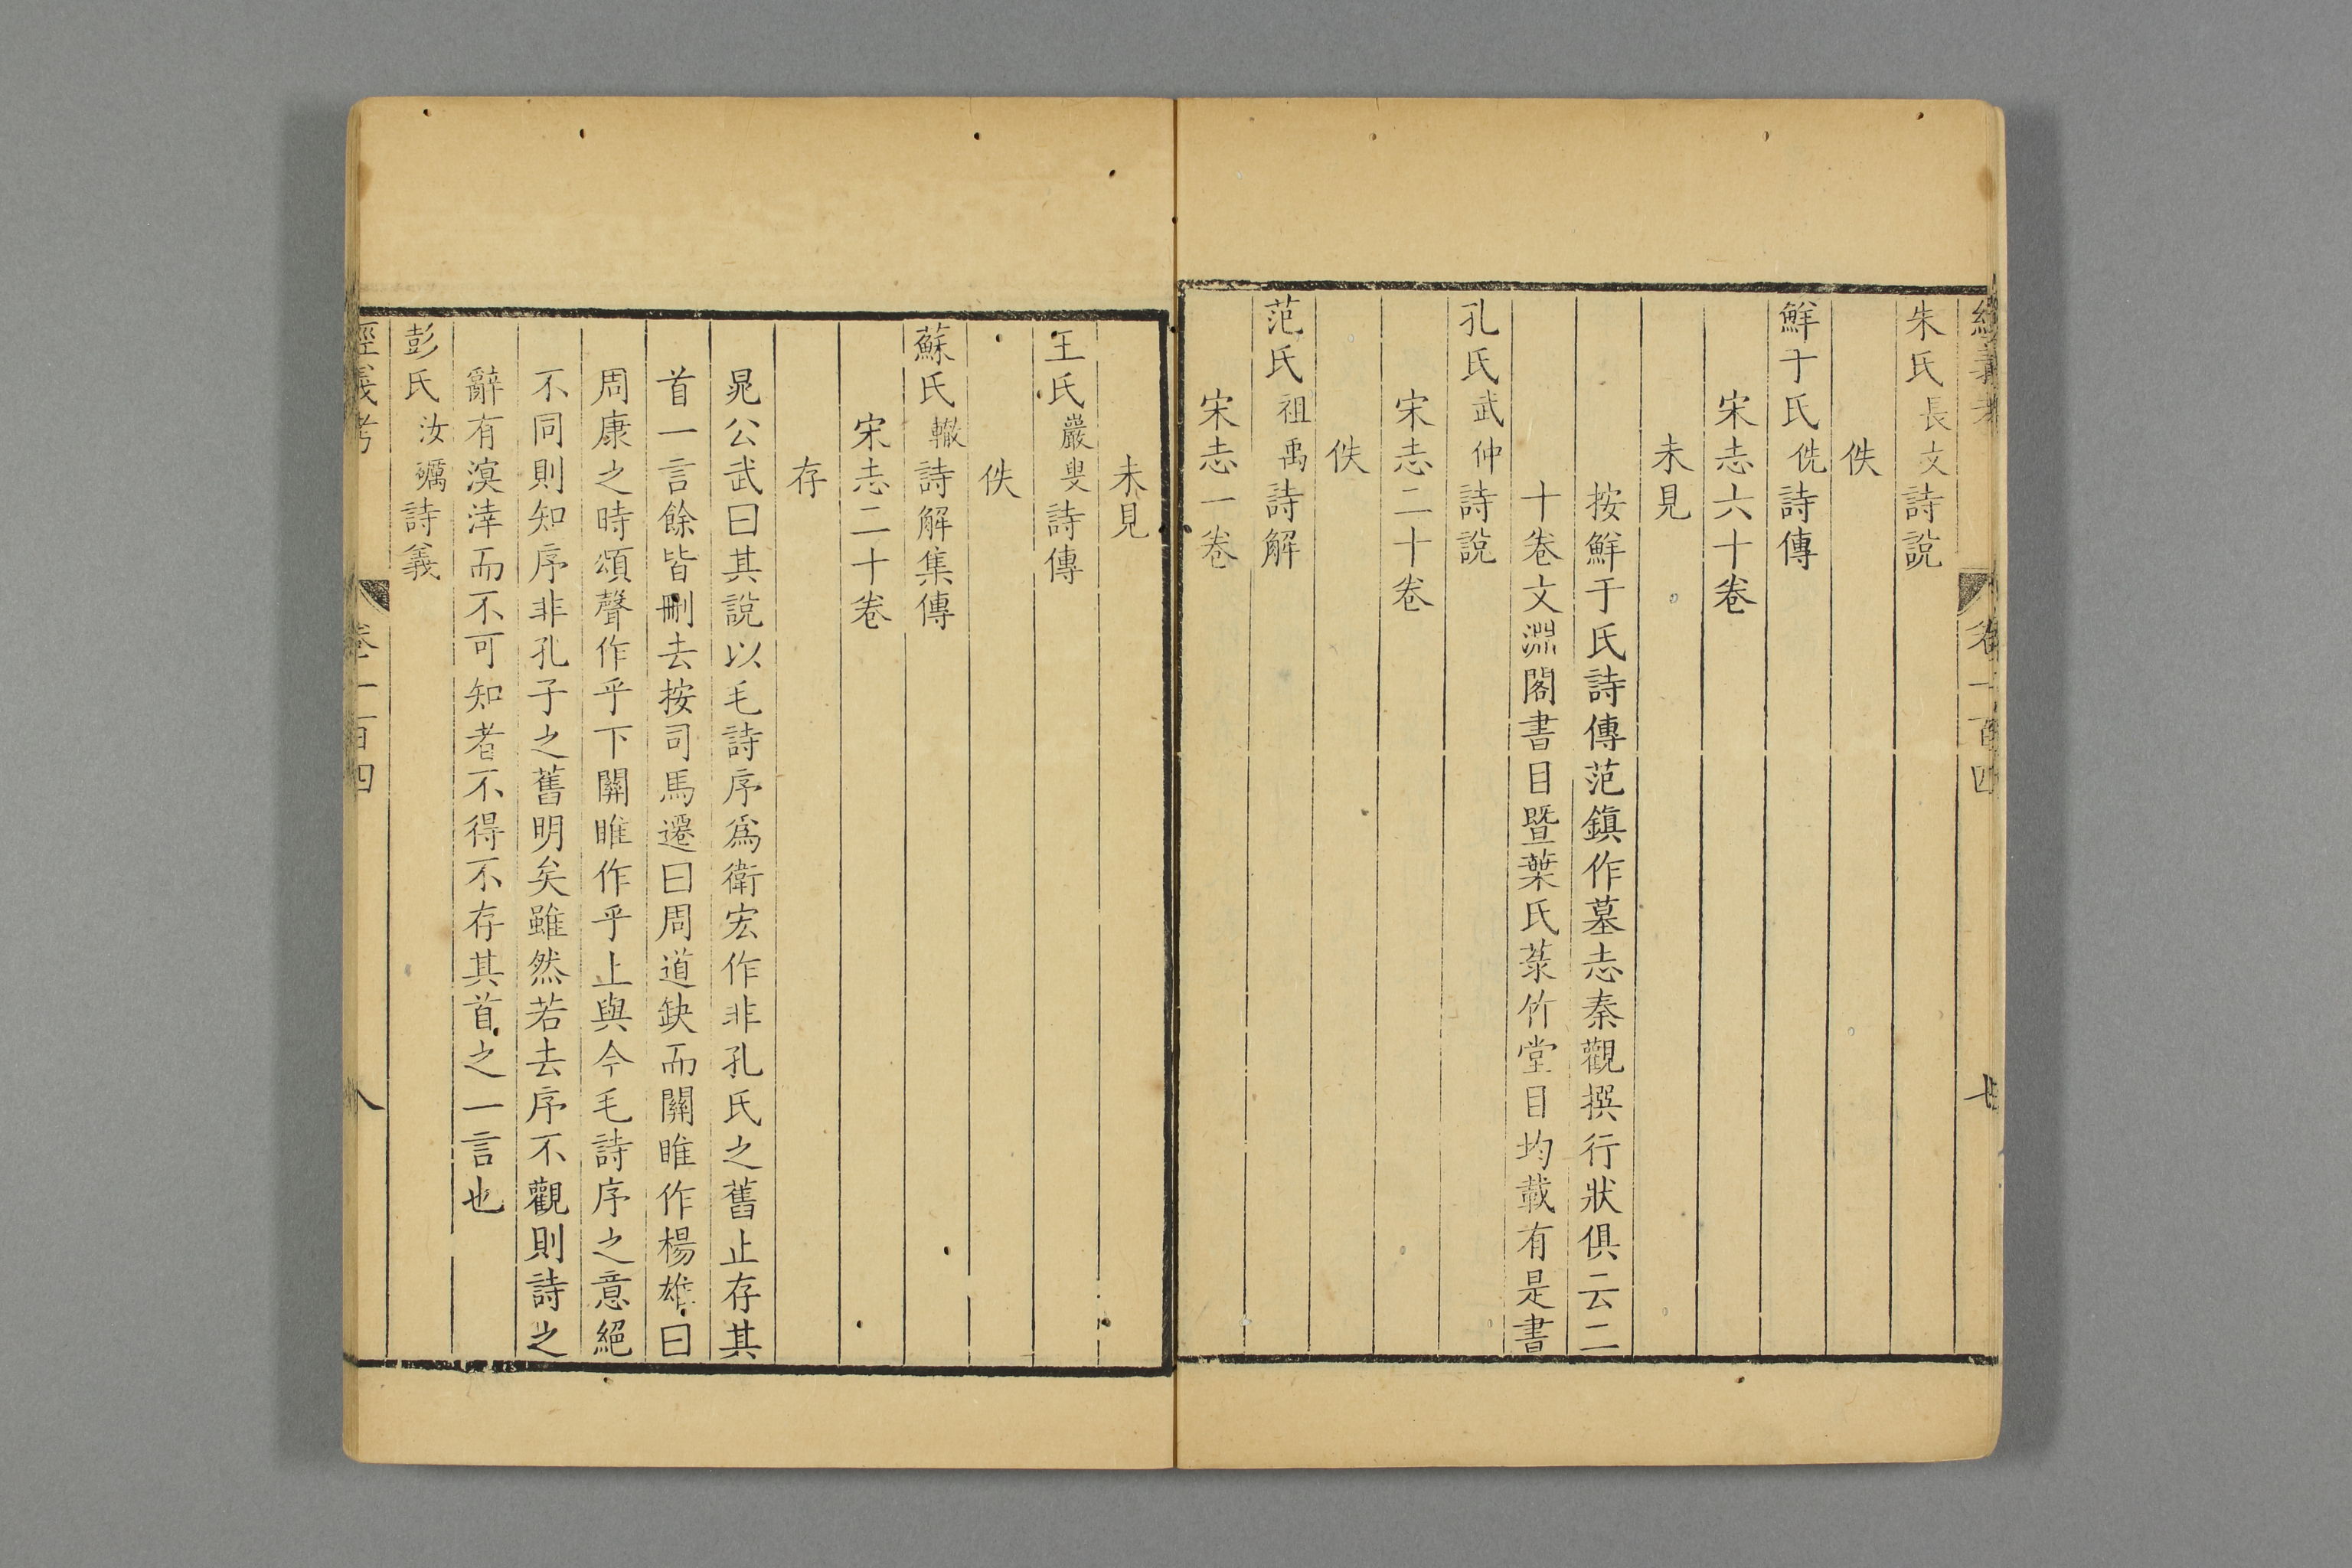 經義考 卷一百四 七
朱氏長文詩說
佚
鮮于氏侁詩傳
宋志六十卷
未見
按鮮于氏詩傳范鎮作墓志秦觀撰行狀俱云二
十卷文淵閣書目曁葉氏菉竹堂目均載有是書
孔氏武仲詩說
宋志二十卷
佚
范氏祖禹詩解
宋志一卷
未見
王氏巖叟詩傳
佚
蘇氏轍詩解集傳
宋志二十卷
存
晁公武曰其說以毛詩序爲衛宏作非孔氏之舊止存其
首一言餘皆刪去按司馬遷曰周道缺而關雎作楊雄曰
周康之時頌聲作乎下關雎作乎上與今毛詩序之意絕
不同則知序非孔子之舊明矣雖然若去序不觀則詩之
辭有溟涬而不可知者不得不存其首之一言也
彭氏汝礪詩義
經義考 卷一百四 八